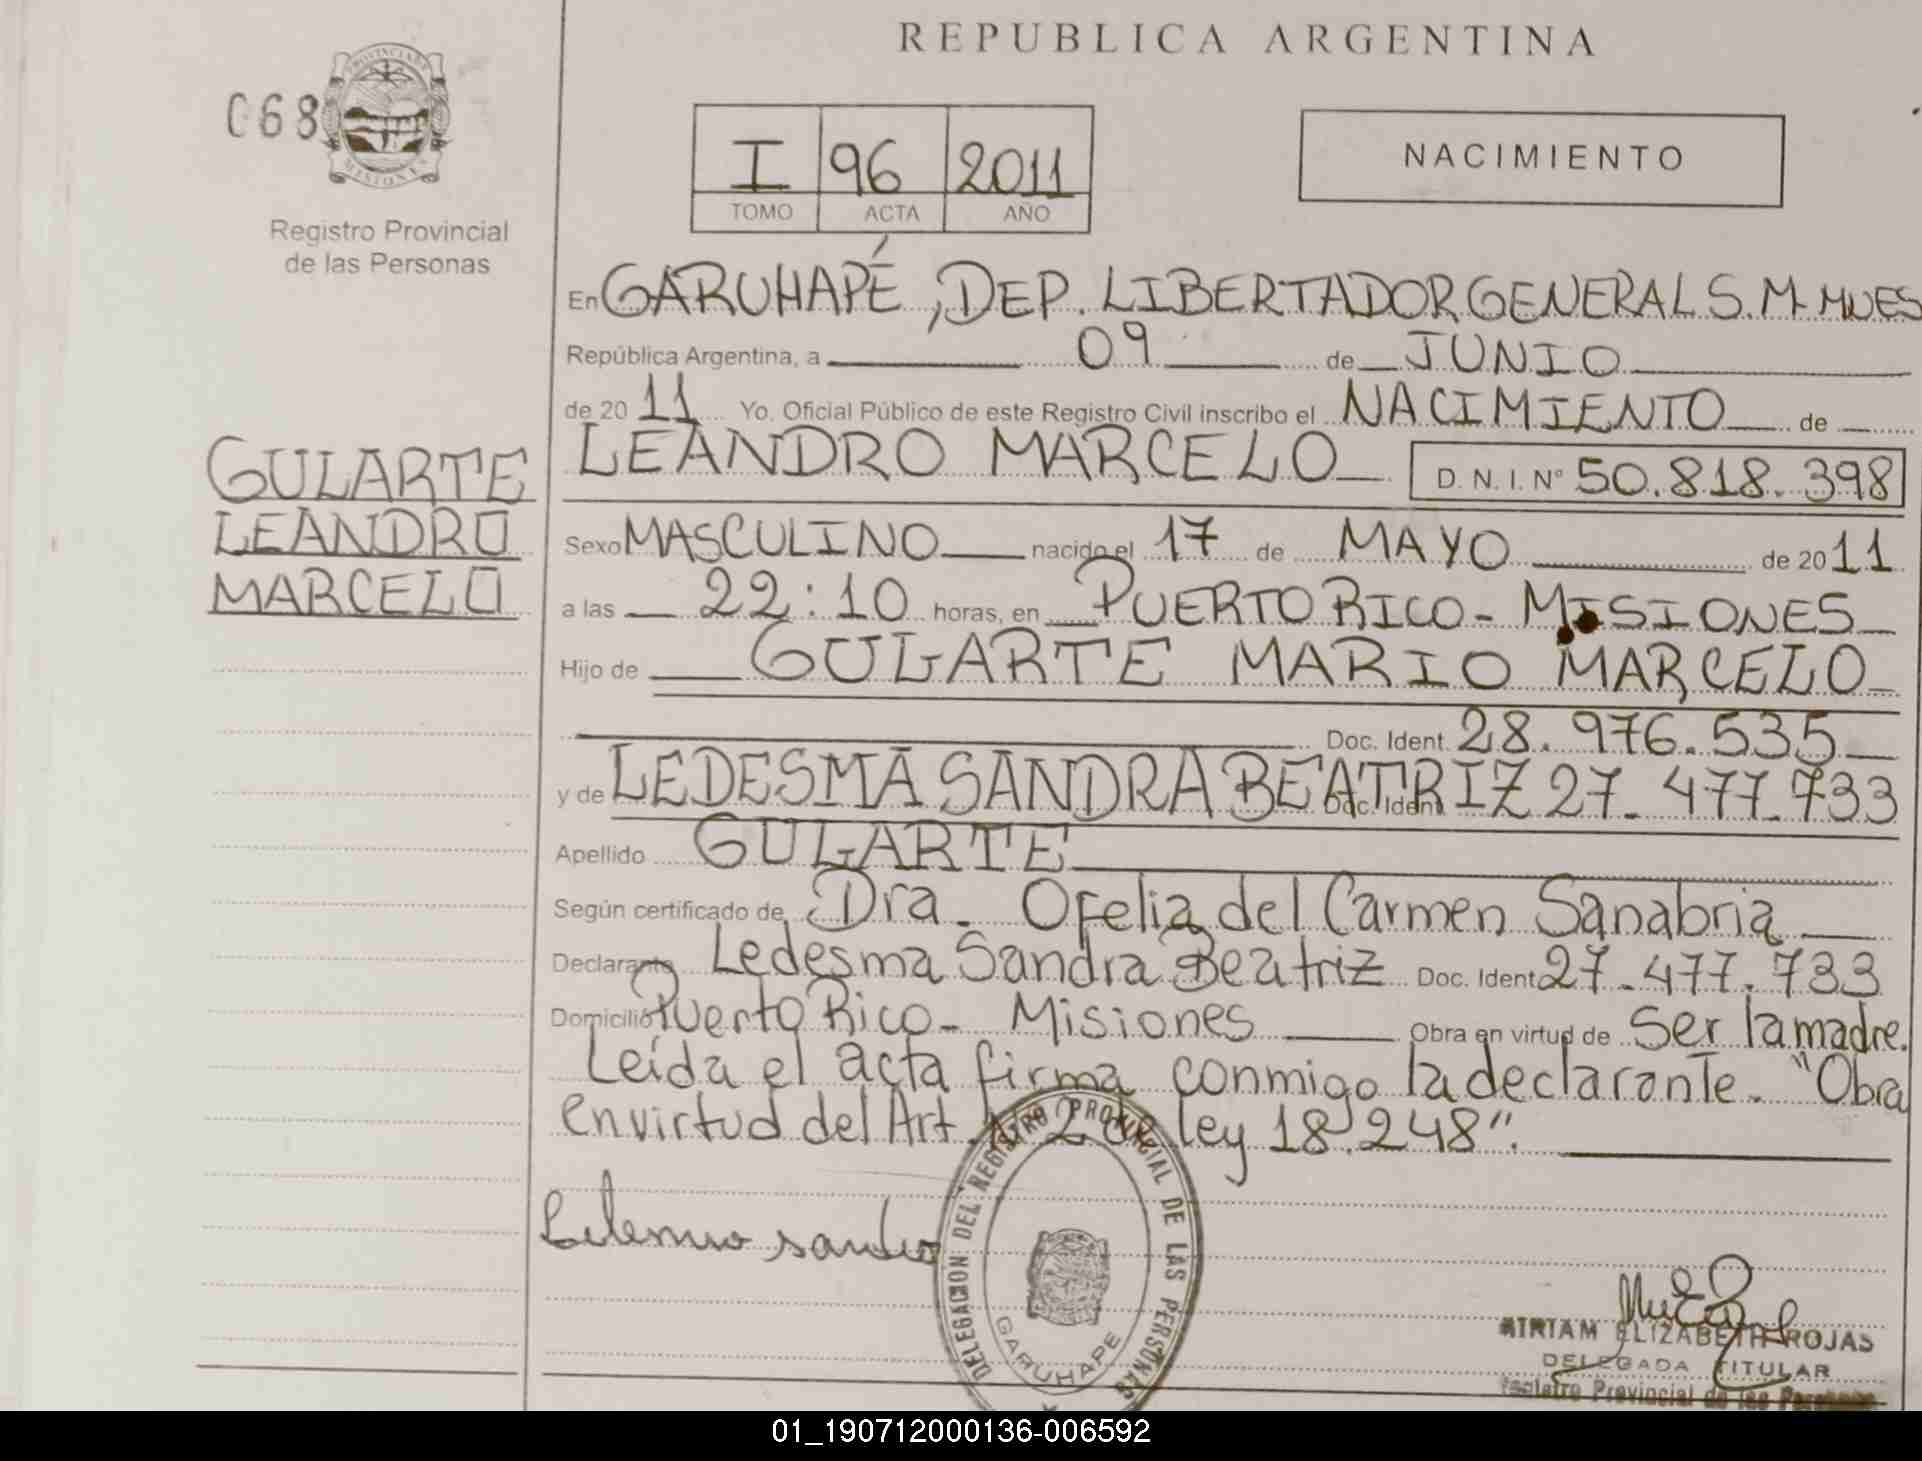 REPUBLICA ARGENTINA
068
PROVINCIA DE MISIONES
Registro Provincial
de las Personas
I 96 2011
TOMO ACTA AÑO
NACIMIENTO
En GARUHAPÉ, DEP. LIBERTADOR GENERAL S. M. MNES
República Argentina, a 09 de JUNIO
de 20 11 Yo. Oficial Público de este Registro Civil inscribo el NACIMIENTO de
LEANDRO MARCELO D. N. I. Nº 50.818.398
GULARTE
LEANDRO
MARCELO
Sexo MASCULINO nacido el 17 de MAYO de 20 11
a las 22:10 horas, en PUERTO RICO - MISIONES
Hijo de GULARTE MARIO MARCELO
Doc. Ident. 28.976.535
y de LEDESMA SANDRA BEATRIZ Doc. Ident 27.477.733
Apellido GULARTE
Según certificado de Dra. Ofelia del Carmen Sanabria
Declarante Ledesma Sandra Beatriz Doc. Ident 27.477.733
Domicilio Puerto Rico - Misiones Obra en virtud de Ser la madre.
Leída el acta firma conmigo la declarante. "Obra
en virtud del Art. 2 de ley 18.248".
DELEGACION DEL REGISTRO PROVINCIAL DE LAS PERSONAS
GARUHAPE
MIRIAM ELIZABETH ROJAS
DELEGADA TITULAR
Registro Provincial de las Personas
01_190712000136-006592